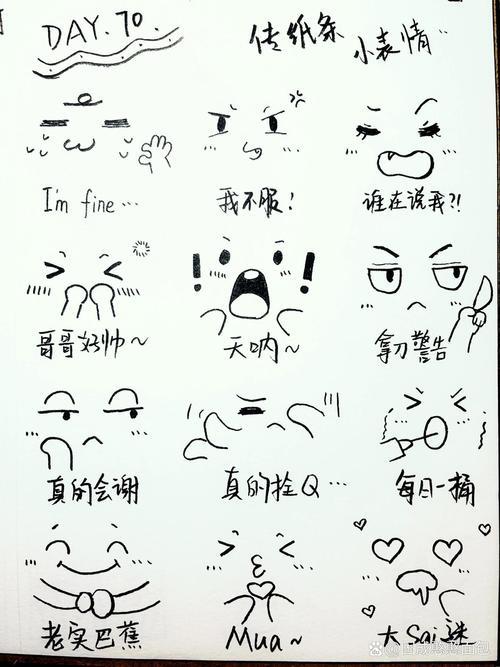 DAY.70.
传纸条
小表情
I'm fine…
我不服!
谁在说我?!
哥哥好帅~
天呐~
拿刀警告
真的会谢
真的拴Q…
每日一捅
老实巴蕉
Mua~
大Sai迷